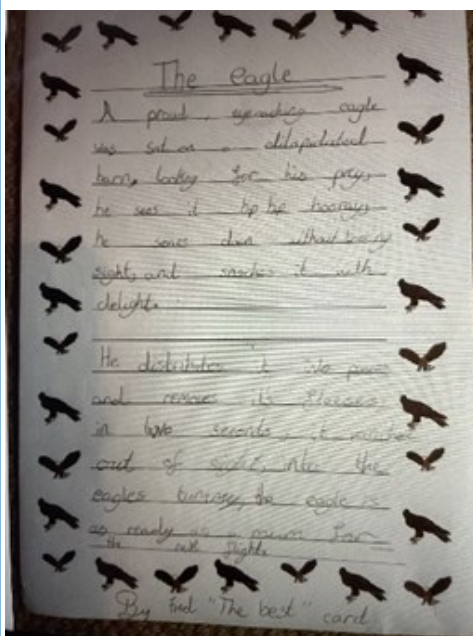 The eagle
A proud, eyecatching eagle
was sat on a dilapidated
barn, looking for his prey,
he sees it hip hip hooray,
he soars down without losing
sight, and snaches it with
delight.
He distributes it into pieces
and removes it's
in two seconds, it vanished
out of sight, into the
eagles tummy, the eagle is
as ready as a mum for
the next flight.
By Fred "The best" card